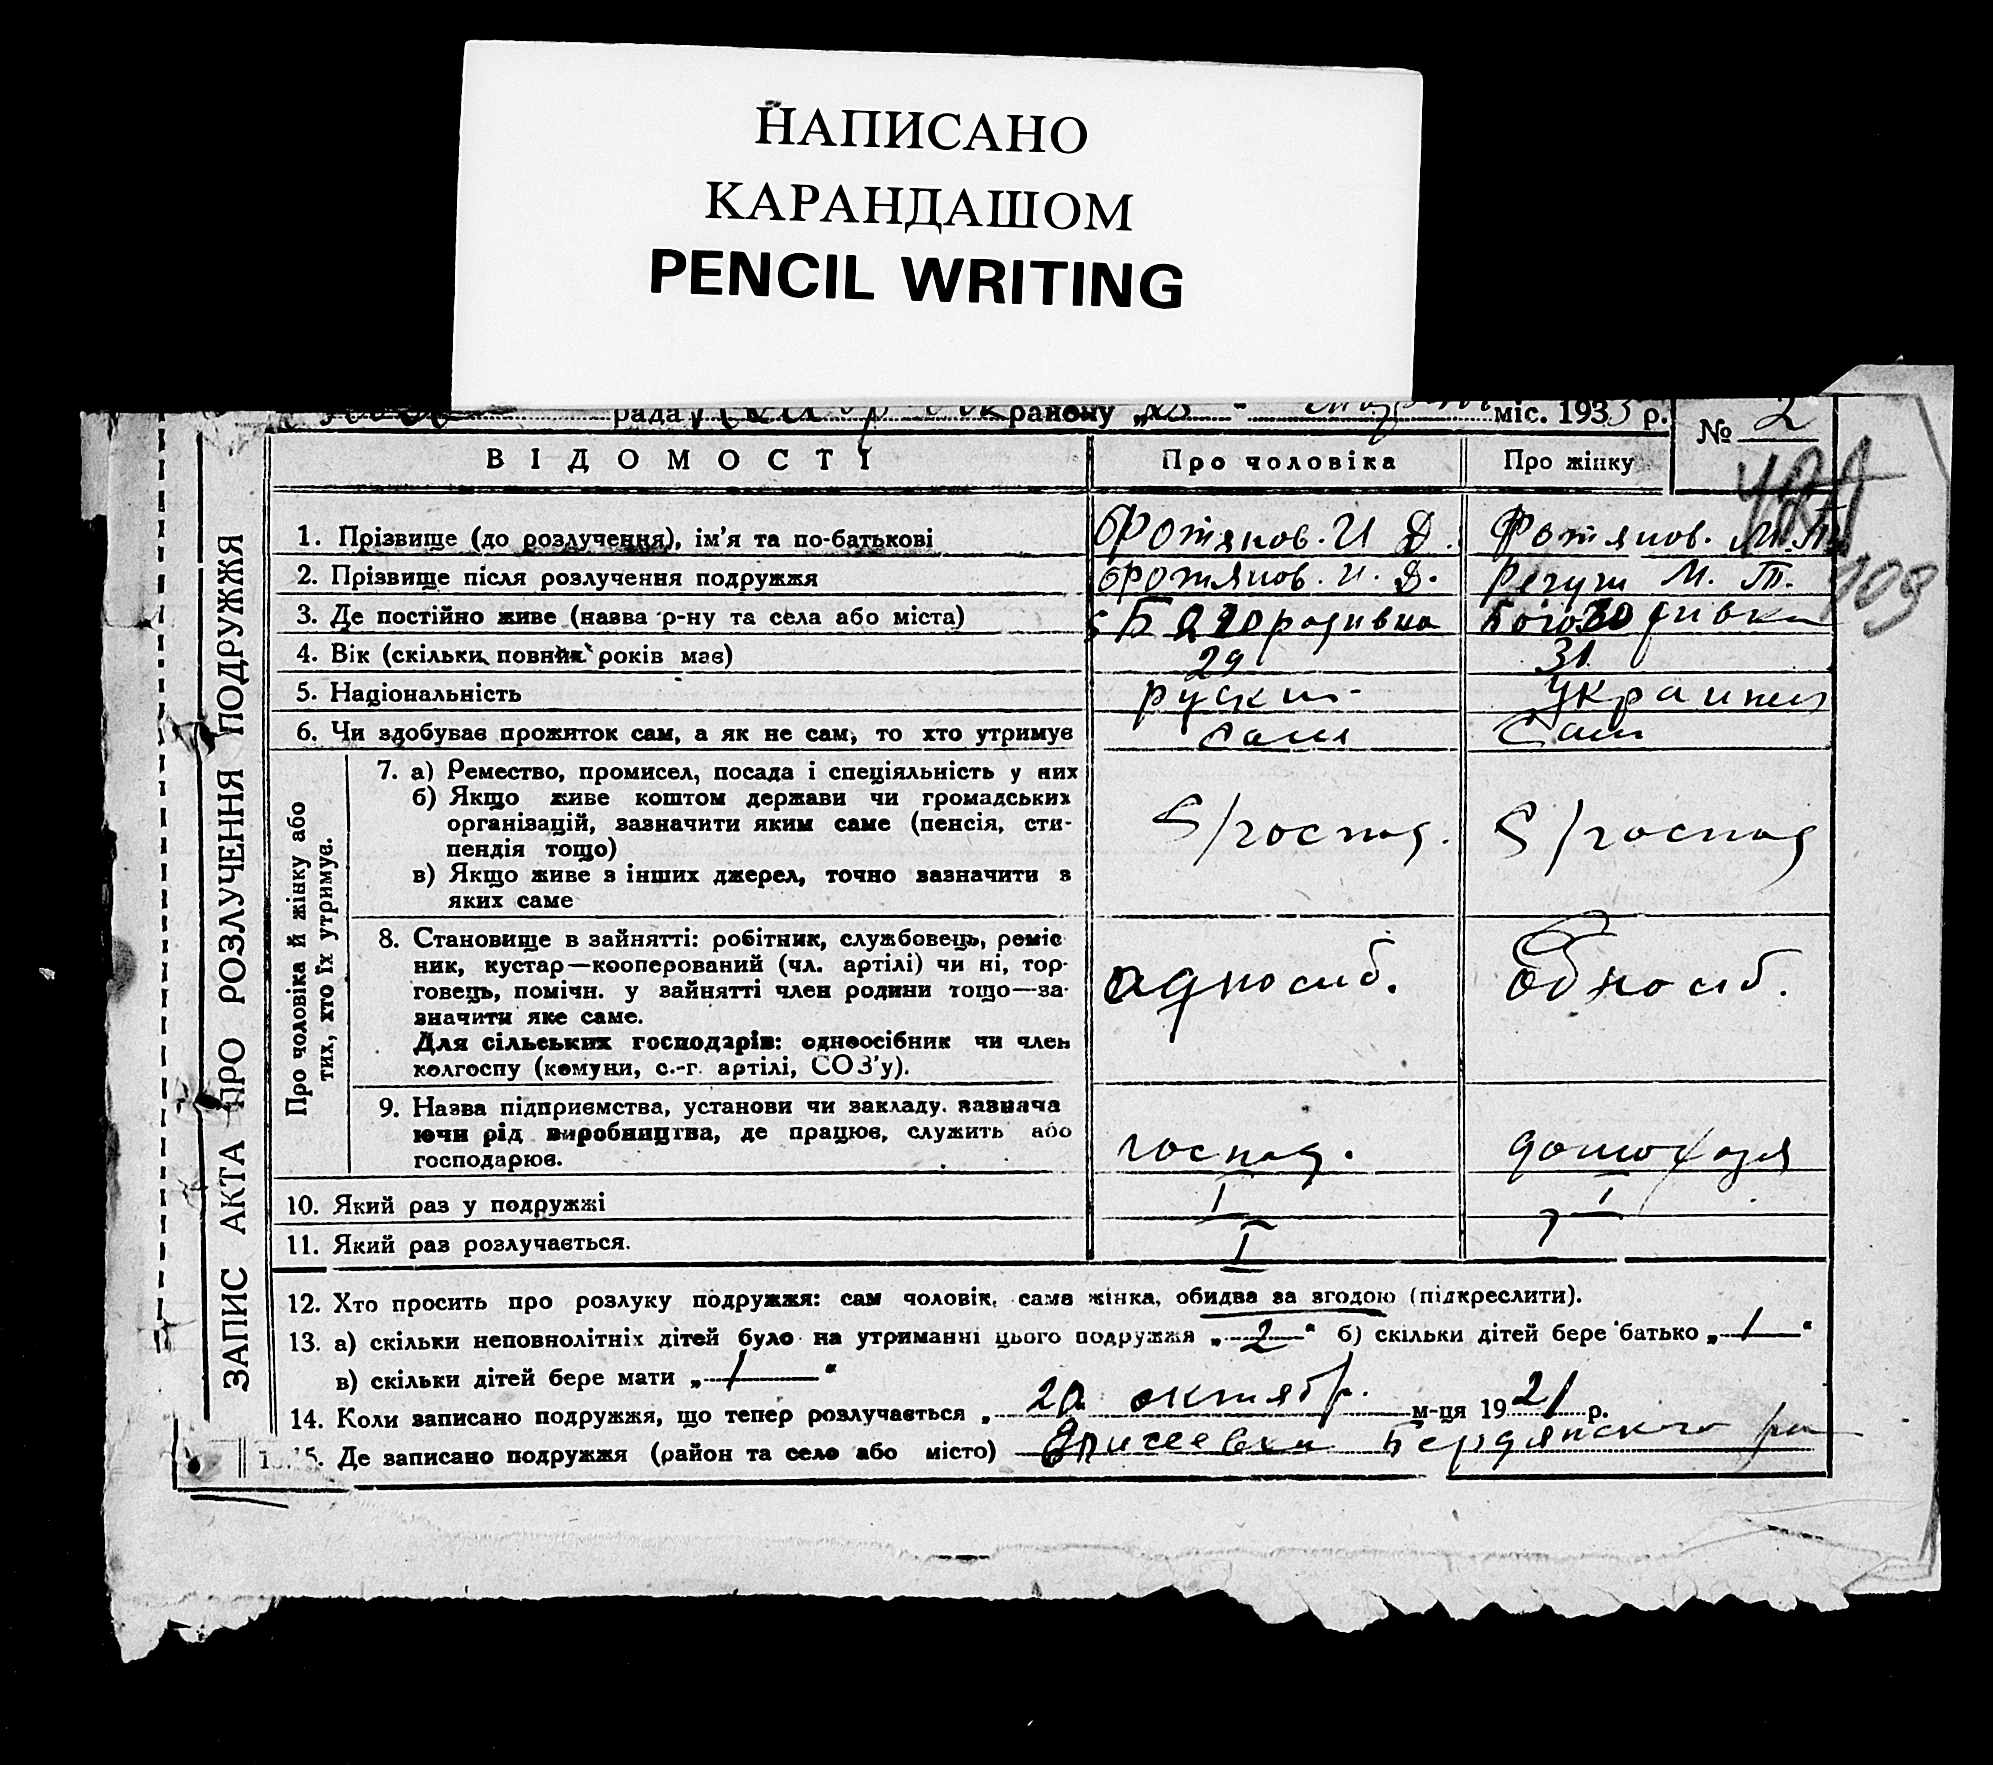 НАПИСАНО
КАРАНДАШОМ
PENCIL WRITING
рада району міс. 1933 р.
№ 2
ВІДОМОСТІ Про чоловіка Про жінку
109
ЗАПИС АКТА ПРО РОЗЛУЧЕННЯ ПОДРУЖЖЯ
1. Прізвище (до розлучення), ім'я та по-батькові Фотянов. И Д. Фотянов. М. Т.
2. Прізвище після розлучення подружжя Фотянов. И. Д. М. Т.
3. Де постійно живе (назва р-ну та села або міста)
4. Вік (скільки повних років має) 29 31
5. Національність руский
6. Чи здобуває прожиток сам, а як не сам, то хто утримує сам сам
Про чоловіка й жінку або
тих, хто їх утримує.
7. а) Ремество, промисел, посада і спеціяльність у них
б) Якщо живе коштом держави чи громадських
організацій, зазначити яким саме (пенсія, сти-
пендія тощо)
S/господ. S/господ
в) Якщо живе з інших джерел, точно зазначити з
яких саме
8. Становище в зайнятті: робітник, службовець, реміс
ник, кустар—кооперований (чл. артілі) чи ні, тор-
говець, помічн. у зайнятті член родини тощо—за-
значити яке саме.
односиб. Односиб.
Для сільських господарів: одноосібник чи член
колгоспу (комуни, с.-г. артілі, СОЗ'у).
9. Назва підприємства, установи чи закладу, зазнача
ючи рід виробництва, де працює, служить або
господарює.
господ. домохозя
10. Який раз у подружжі I I
11. Який раз розлучається. I
12. Хто просить про розлуку подружжя: сам чоловік, сама жінка, обидва за згодою (підкреслити).
13. а) скільки неповнолітніх дітей було на утриманні цього подружжя „2“ б) скільки дітей бере батько „1“
в) скільки дітей бере мати „1“
14. Коли записано подружжя, що тепер розлучається „20 октябр. м-ця 1921 р.
15. Де записано подружжя (район та село або місто) Елисеевка Бердянского ра